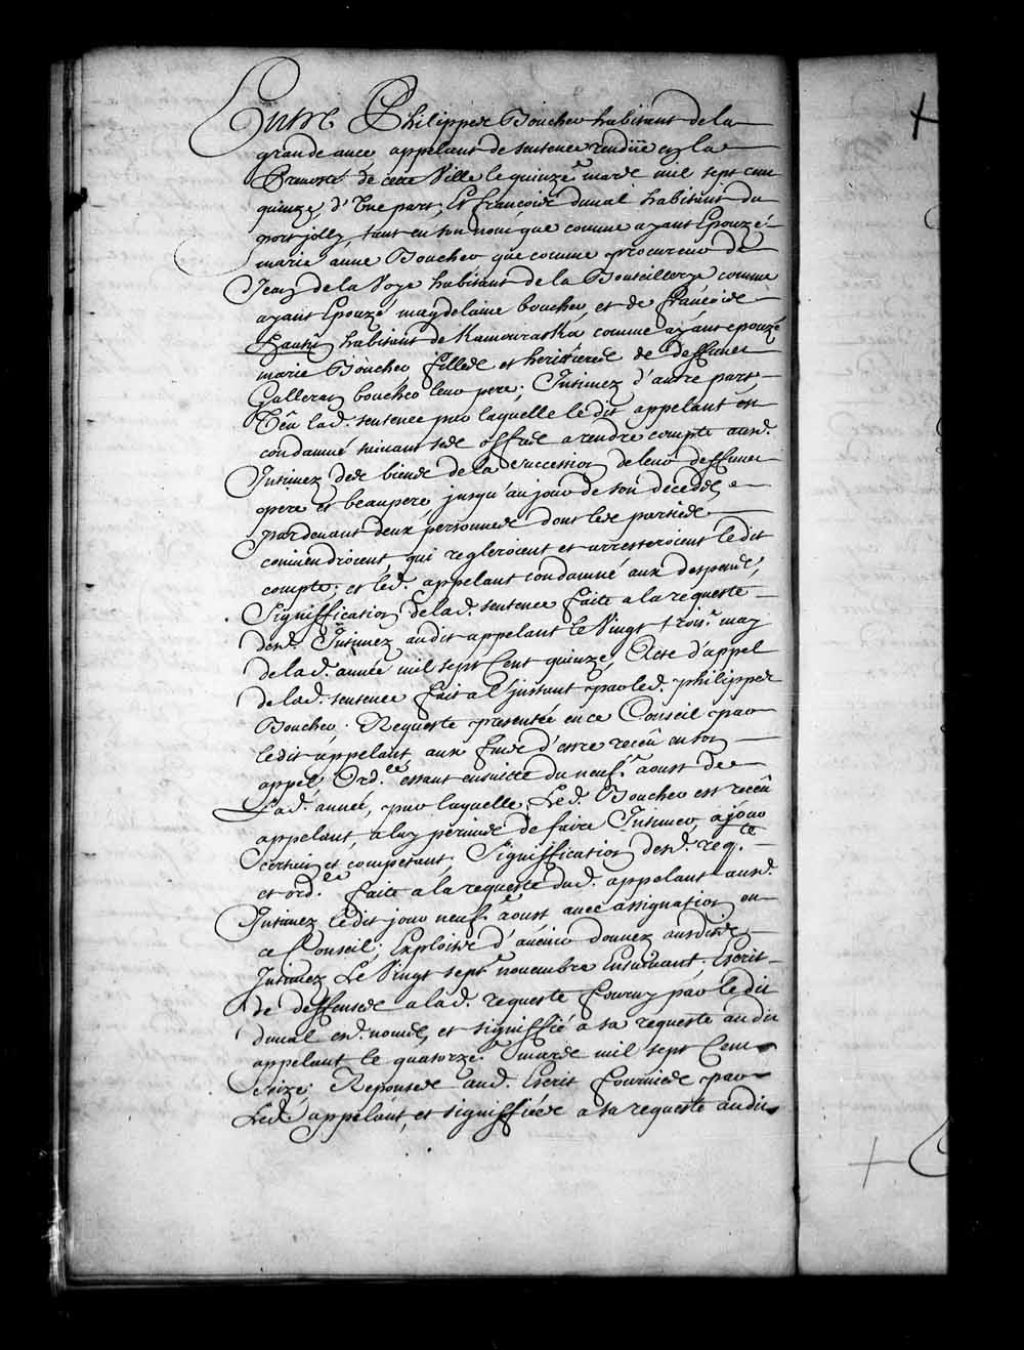 Entre Philippes Boucher habitant de la
grande ance appelant de sentence rendüe en la
Prevosté de cette Ville le quinze.^e mars mil sept cent
quinze, d'Vne part; Et françois duval habitant du
port jolly, tant en son nom que comme ayant Epouzé
marie anne Boucher que comme procureur de
Jean de la Voye habitant de la Bouteillerye comme
ayant Epouzé magdelaine boucher, et de françois
habitant de Kamouraska comme ayant epouzé
marie Boucher filles et heritieres de deffunct
Galleran boucher leur pere; Intimez d'autre part,
Veu lad. sentence par laquelle le dit appelant est
condamné suivant ses offres a rendre compte ausd.
Intimez des biens de la succession de leur deffunct
pere et beaupere, jusqu'au jour de son decedds
pardevant deux personnes dont les parties
conviendroient, qui regleroient et arresteroient le dit
compte; et led. appelant condamné aux despens,
Signiffication de lad. sentence faite a la requeste
desd. Intimez audit appelant le Vingt trois.^e may
de lad. année mil sept Cent quinze, Acte d'appel
de lad. sentence fait a l'jnstant par led. philippes
Boucher. Requeste presentée en ce Conseil par
ledit appelant, aux fins d'estre receu en son
appel, Ord.^ce estant ensuitte du neuf.^e aoust de
Lad. année, par laquelle Led. Boucher est receu
appelant, a luy permis de faire Intimer, a jour
certain et competant, Signiffication desd. req.^te
et ord.^ce faite a la requeste dud. appelant ausd.
Intimez ledit jour neuf.^e aoust avec assignation en
ce Conseil; Exploits d'avenir donnez ausdits
Intimez Le Vingt sept.^e novembre Ensuivant, Escrit
de deffenses a lad. requeste fourny par le dit
duval esd. noms, et signiffié a sa requeste au dit
appelant le quatorze.^e mars mil sept Cent
seize; Reponses aud. Escrit fournies par
Led. appelant, et signiffiées a sa requeste audit